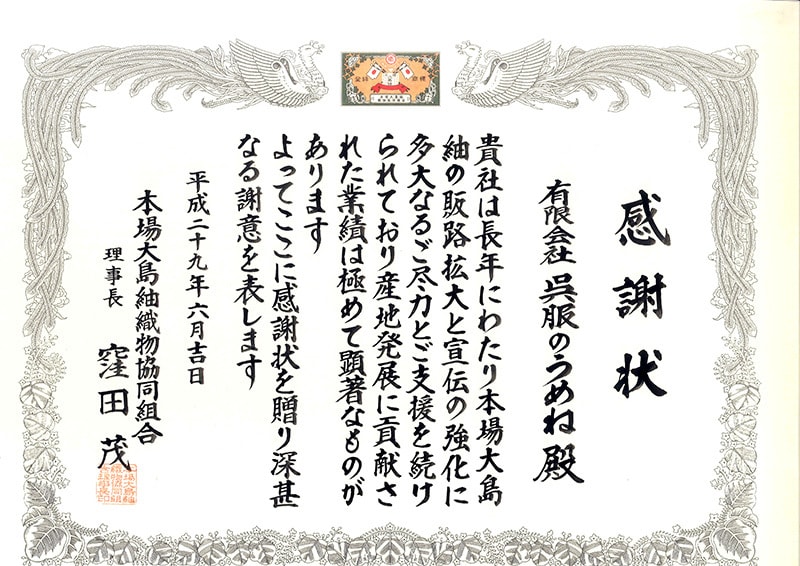 感謝状
有限会社 呉服のうめね殿
貴社は長年にわたり本場大島
紬の販路拡大と宣伝の強化に
多大なるご尽力とご支援を続け
られており産地発展に貢献さ
れた業績は極めて顕著なものが
あります
よってここに感謝状を贈り深甚
なる謝意を表します
平成二十九年六月吉日
本場大島紬織物協同組合
理事長 窪田茂